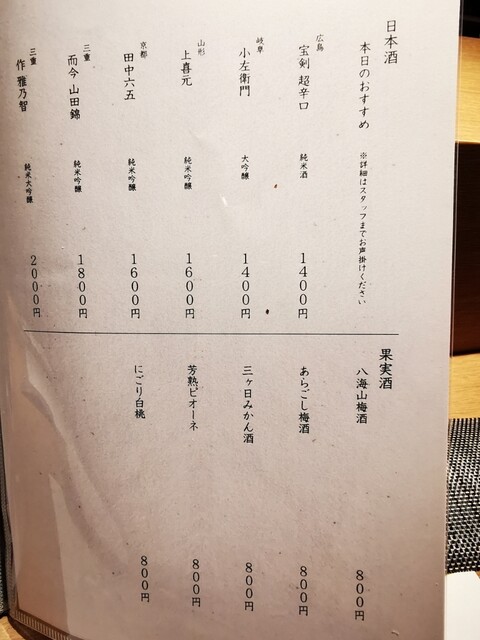 日本酒
本日のおすすめ ※詳細はスタッフまでお声掛けください
広島
宝剣 超辛口 純米酒 1400円
岐阜
小左衛門 大吟醸 1400円
山形
上喜元 純米吟醸 1600円
京都
田中六五 純米吟醸 1600円
三重
而今 山田錦 純米吟醸 1800円
三重
作 雅乃智 純米大吟醸 2000円
果実酒
八海山梅酒 800円
あらごし梅酒 800円
三ヶ日みかん酒 800円
芳熟ピオーネ 800円
にごり白桃 800円